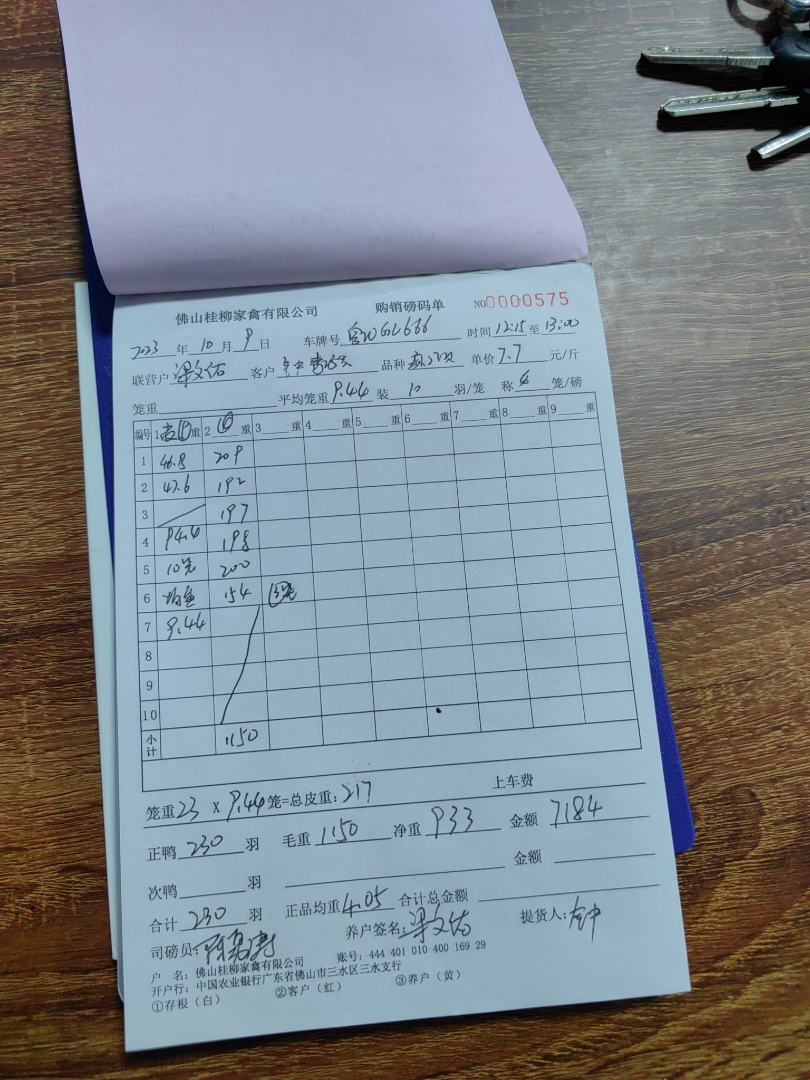 佛山桂柳家禽有限公司 购销磅码单 NO0000575
2023 年 10 月 9 日 车牌号 GL666 时间 12:15 至 13:00
联营户 梁文佑 客户 品种 单价 7.7 元/斤
笼重 平均笼重 9.44 装 10 羽/笼 称 4 笼/磅
编号 1 重 2 ④ 重 3 重 4 重 5 重 6 重 7 重 8 重 9 重
1 46.8 209
2 47.6 192
3 197
4 94.4 198
5 10笼 200
6 154 ③笼
7 9.44
8
9
10
小计 1150
笼重 23 X 9.44 笼=总皮重: 217 上车费
正鸭 230 羽 毛重 1150 净重 933 金额 7184
次鸭 羽 金额
合计 230 羽 正品均重 4.05 合计总金额
司磅员: 养户签名: 梁文佑 提货人:
户 名: 佛山桂柳家禽有限公司 账号: 444 401 010 400 169 29
开户行: 中国农业银行广东省佛山市三水区三水支行
①存根（白） ②客户（红） ③养户（黄）